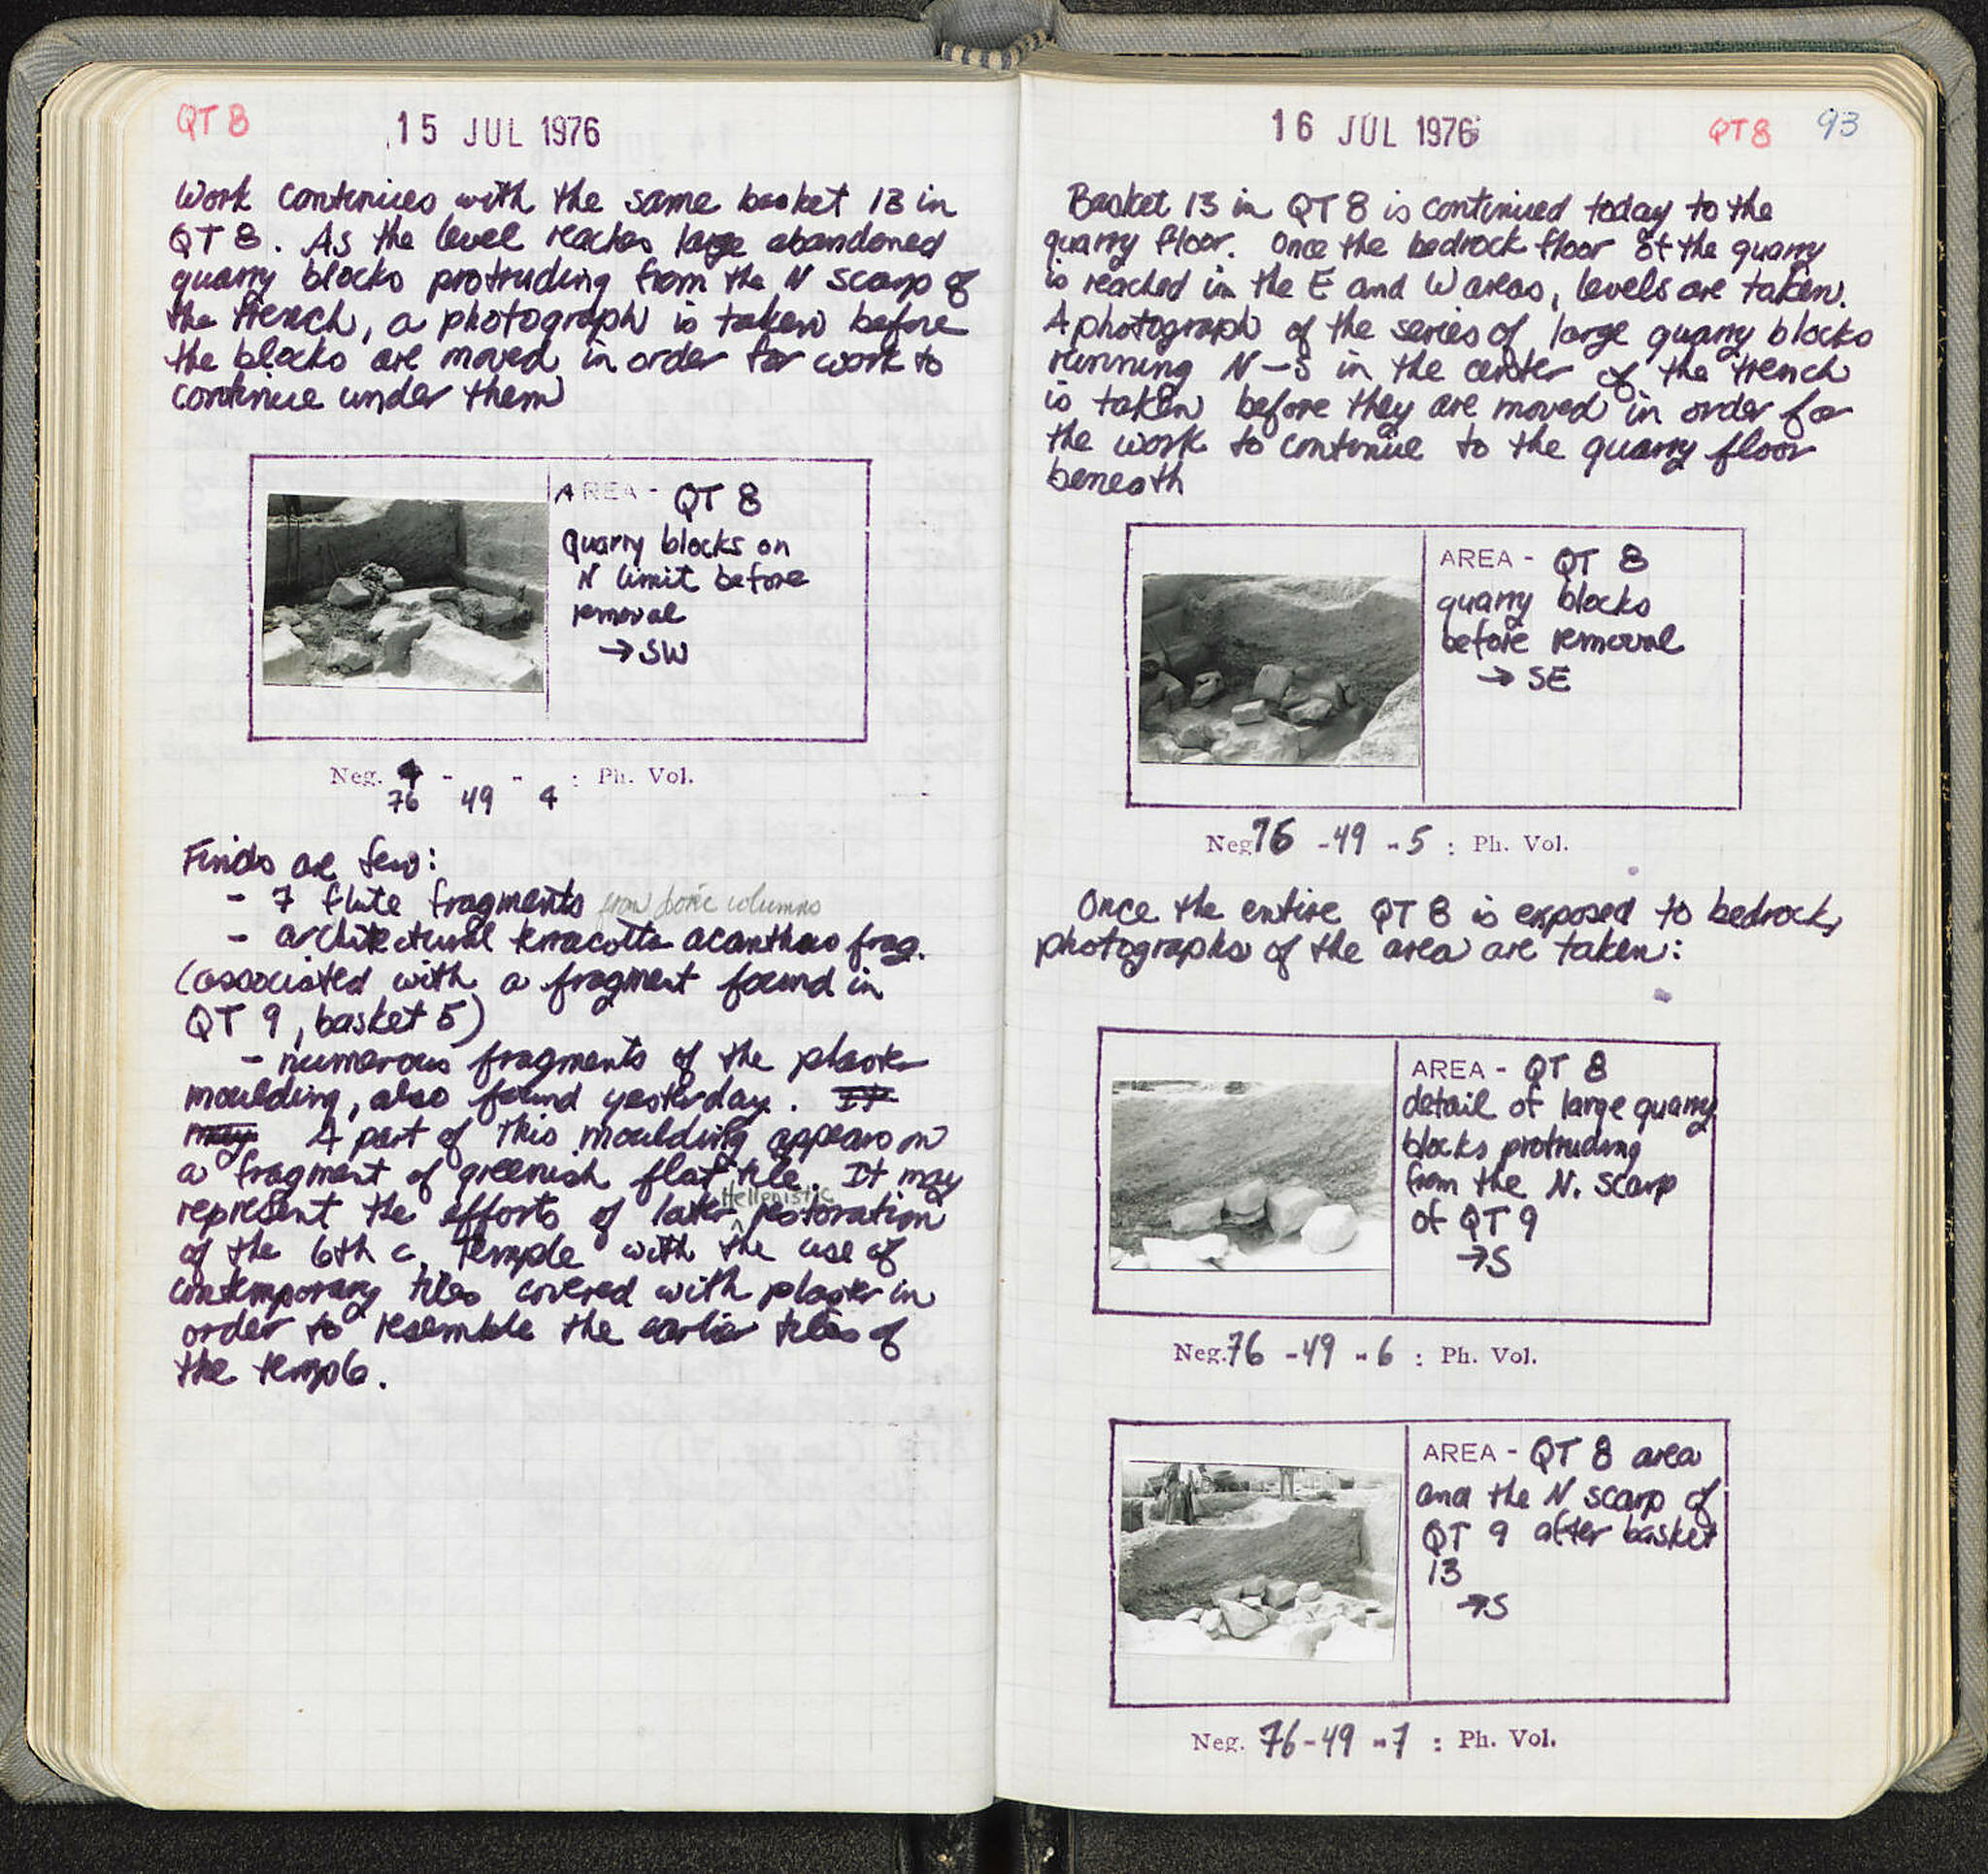 QT 8
15 JUL 1976
Work continues with the same basket 13 in
QT 8. As the level reaches large abandoned
quarry blocks protruding from the N scarp of
the trench, a photograph is taken before
the blocks are moved in order for work to
continue under them
AREA - QT 8
quarry blocks on
N limit before
removal
→ SW
Neg. - - : Ph. Vol.
76 49 4
Finds are few:
- 7 flute fragments from Doric columns
- architectural terracotta acanthus frag.
(associated with a fragment found in
QT 9, basket 5)
- numerous fragments of the plaster
moulding, also found yesterday. It
may A part of this moulding appears on
a fragment of greenish flat tile. It may
Hellenistic
represent the efforts of later ^ restoration
of the 6th c. temple with the use of
contemporary tiles covered with plaster in
order to resemble the earlier tiles of
the temple.
16 JUL 1976
QT 8 93
Basket 13 in QT 8 is continued today to the
quarry floor. Once the bedrock floor of the quarry
is reached in the E and W areas, levels are taken.
A photograph of the series of large quarry blocks
running N-S in the center of the trench
is taken before they are moved in order for
the work to continue to the quarry floor
beneath
AREA - QT 8
quarry blocks
before removal
→ SE
Neg 76 - 49 - 5 : Ph. Vol.
Once the entire QT 8 is exposed to bedrock,
photographs of the area are taken:
AREA - QT 8
detail of large quarry
blocks protruding
from the N. scarp
of QT 9
→ S
Neg. 76 - 49 - 6 : Ph. Vol.
AREA - QT 8 area
and the N scarp of
QT 9 after basket
13
→ S
Neg. 76 - 49 - 7 : Ph. Vol.